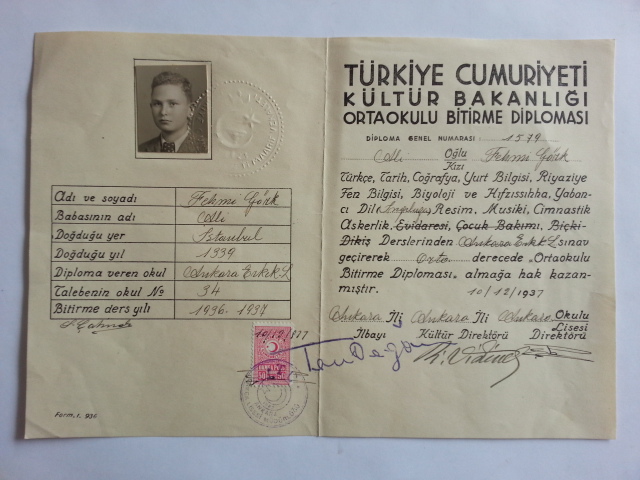 Adı ve soyadı Fehmi Gönk
Babasının adı Alli
Doğduğu yer Istanbul
Doğduğu yıl 1339
Diploma veren okul Ankara Erkek L
Talebenin okul No 34
Bitirme ders yılı 1936-1937
Form. 1. 936
10/12/937
TÜRKİYE CUMURİYETİ
KÜLTÜR BAKANLIĞI
ORTAOKULU BİTİRME DİPLOMASI
DİPLOMA GENEL NUMARASI 1579
Alli Oğlu Fehmi Gönk
Kızı
Türkçe, Tarih, Coğrafya, Yurt Bilgisi, Riyaziye
Fen Bilgisi, Biyoloji ve Hıfzıssıhha, Yaban-
cı Dil Resim, Musiki, Cimnastik
Askerlik. Evidaresi, Çocuk Bakımı, Biçki-
Dikiş Derslerinden Ankara Erkek L sınav
geçirerek Orta derecede «Ortaokulu
Bitirme Diploması» almağa hak kazan-
mıştır. 10/12/1937
Ankara İli Ankara İli Ankara Okulu
Lisesi
İlbayı Kültür Direktörü Direktörü